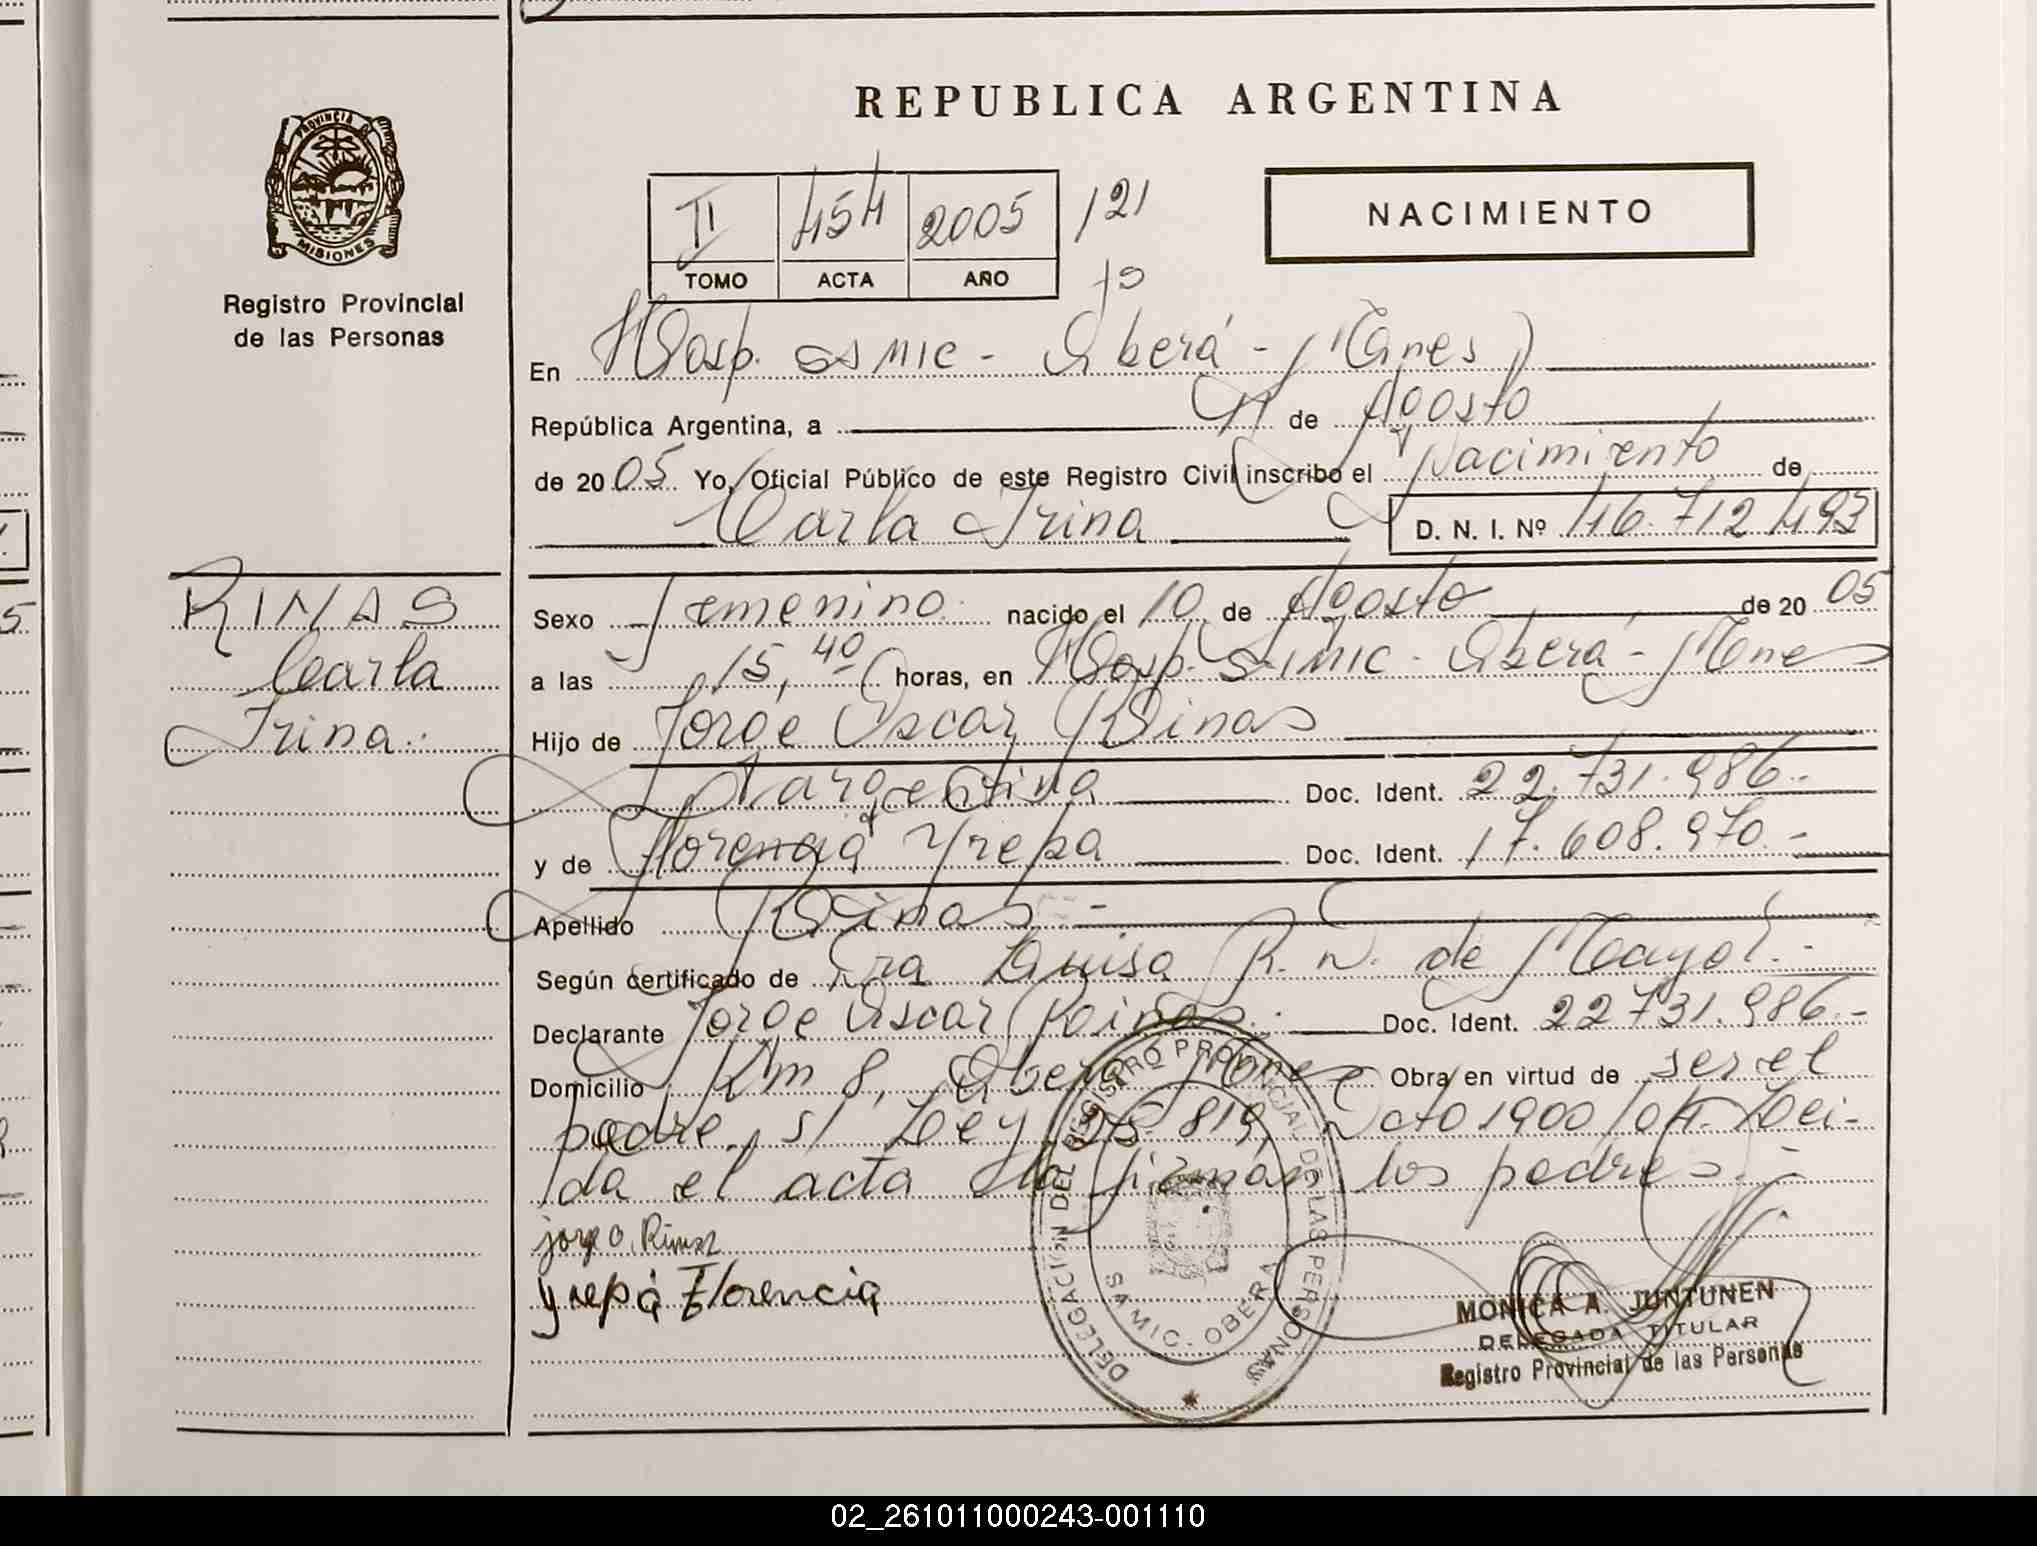 REPUBLICA ARGENTINA
PROVINCIA DE
MISIONES
Registro Provincial
de las Personas
II 454 2005 121
TOMO ACTA AÑO
NACIMIENTO
En Hosp. SAMIC - Oberá - Mnes
República Argentina, a 11 de Agosto
de 2005 Yo, Oficial Público de este Registro Civil inscribo el Nacimiento de
Carla Irina D. N. I. Nº 46.712.493
RINAS
Carla
Irina.
Sexo Femenino nacido el 10 de Agosto de 2005
a las 15,40 horas, en Hosp. SAMIC - Oberá - Mnes
Hijo de Jorge Oscar Rinas
Argentina Doc. Ident. 22.731.986.-
y de Florencia Yrepa Doc. Ident. 17.608.970.-
Apellido Rinas.-
Según certificado de Dra Luisa R. N. de Mayol.-
Declarante Jorge Oscar Rinas.- Doc. Ident. 22.731.986.-
Domicilio Km 8, Oberá Mnes Obra en virtud de ser el
padre, s/ Ley 25.819, Dcto 1900/04. Leí-
da el acta la firman los padres.-
jorge O. Rinas
yrepa Florencia
DELEGACION DEL REGISTRO PROVINCIAL DE LAS PERSONAS
SAMIC - OBERA
MONICA A. JUNTUNEN
DELEGADA TITULAR
Registro Provincial de las Personas
02_261011000243-001110